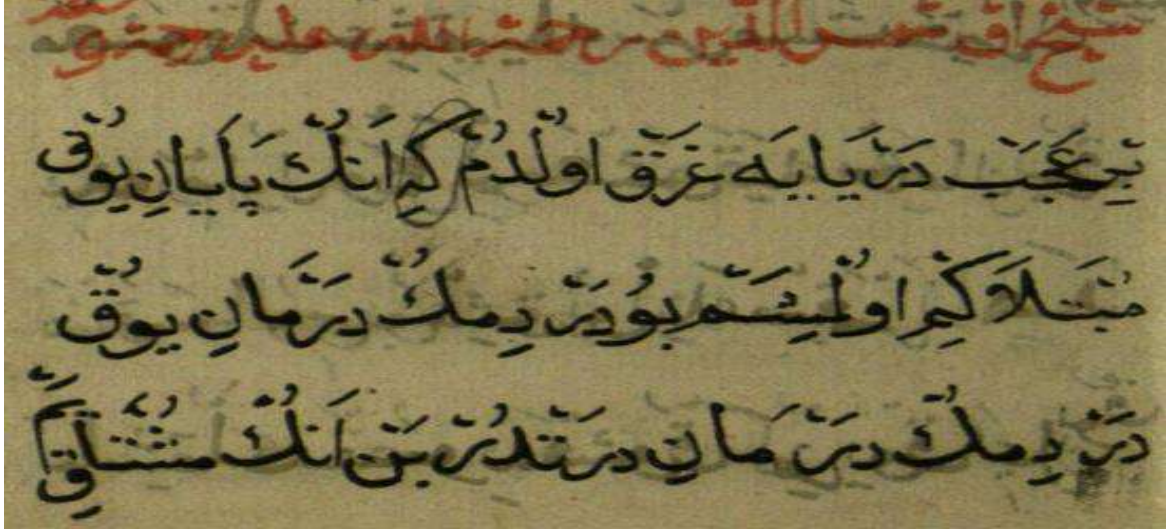 شيخ اق شمس الدين رحمة الله عليه رحمة
بِرْ عَجَبْ دَرْيَايَه غَرَقْ اولْدُمْ كِه اَنُكْ پَايَانِ يُوقْ
مُبْتَلَا كِمْ اولْمِشَمْ بُو دَرْدِمكْ دَرْمَانِ يوُقْ
دَرْدِمكْ دَرْمَانِ دَرْتدُرْ بَنْ اَنكْ مُشْتَاقِ